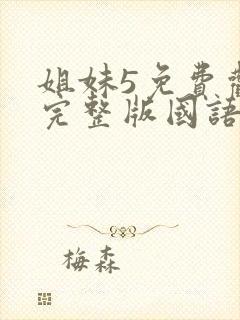 姐妹5免費
完整版國語
梅森